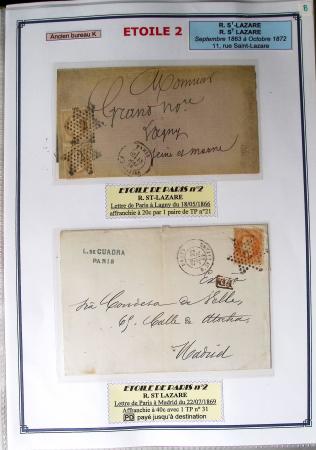 B
Ancien bureau K
ETOILE 2
R. St-LAZARE
R. St LAZARE
Septembre 1863 à Octobre 1872
11, rue Saint-Lazare
Monsieur
Grand
Lagny
Seine et marne
ETOILE DE PARIS n°2
R. ST-LAZARE
Lettre de Paris à Lagny du 18/05/1866
affranchie à 20c par 1 paire de TP n°21
L. DE CUADRA
PARIS
PD
Condesa de Velle
69, Calle de Atocha
Madrid
ETOILE DE PARIS n°2
R. ST LAZARE
Lettre de Paris à Madrid du 22/07/1869
Affranchie à 40c avec 1 TP n° 31
PD payé jusqu'à destination